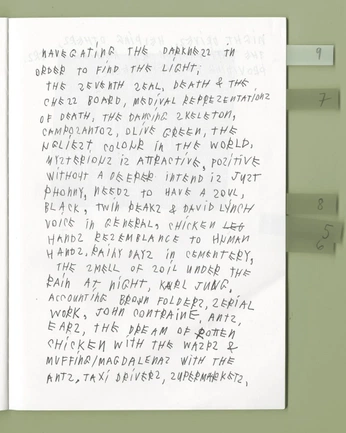 NAVEGATING THE DARKNEZZ IN
ORDER TO FIND THE LIGHT;
THE ZEVENTH ZEAL, DEATH & THE
CHEZZ BOARD, MEDIVAL REPREZENTATIONZ
OF DEATH, THE DANCING ZKELETON,
CAMPOZANTOZ, OLIVE GREEN, THE
UGLIEZT COLOUR IN THE WORLD,
MYZTERIOUZ IZ ATTRACTIVE, POZITIVE
WITHOUT A DEEPER INTEND IZ JUZT
PHONNY, NEEDZ TO HAVE A ZOUL,
BLACK, TWIN PEAKZ & DAVID LYNCH
VOICE IN GENERAL, CHICKEN LEG
HANDZ REZEMBLANCE TO HUMAN
HANDZ, RAINY DAYZ IN CEMENTERY,
THE ZMELL OF ZOIL UNDER THE
RAIN AT NIGHT, KARL JUNG,
ACCOUNTING BROWN FOLDERZ, ZERIAL
WORK, JOHN CONTRAINE, ANTZ,
EARZ, THE DREAM OF ROTTEN
CHICKEN WITH THE WAZPZ &
MUFFING/MAGDALENAZ WITH THE
ANTZ, TAXI DRIVERZ, ZUPERMARKETZ,
9
7
8
5
6